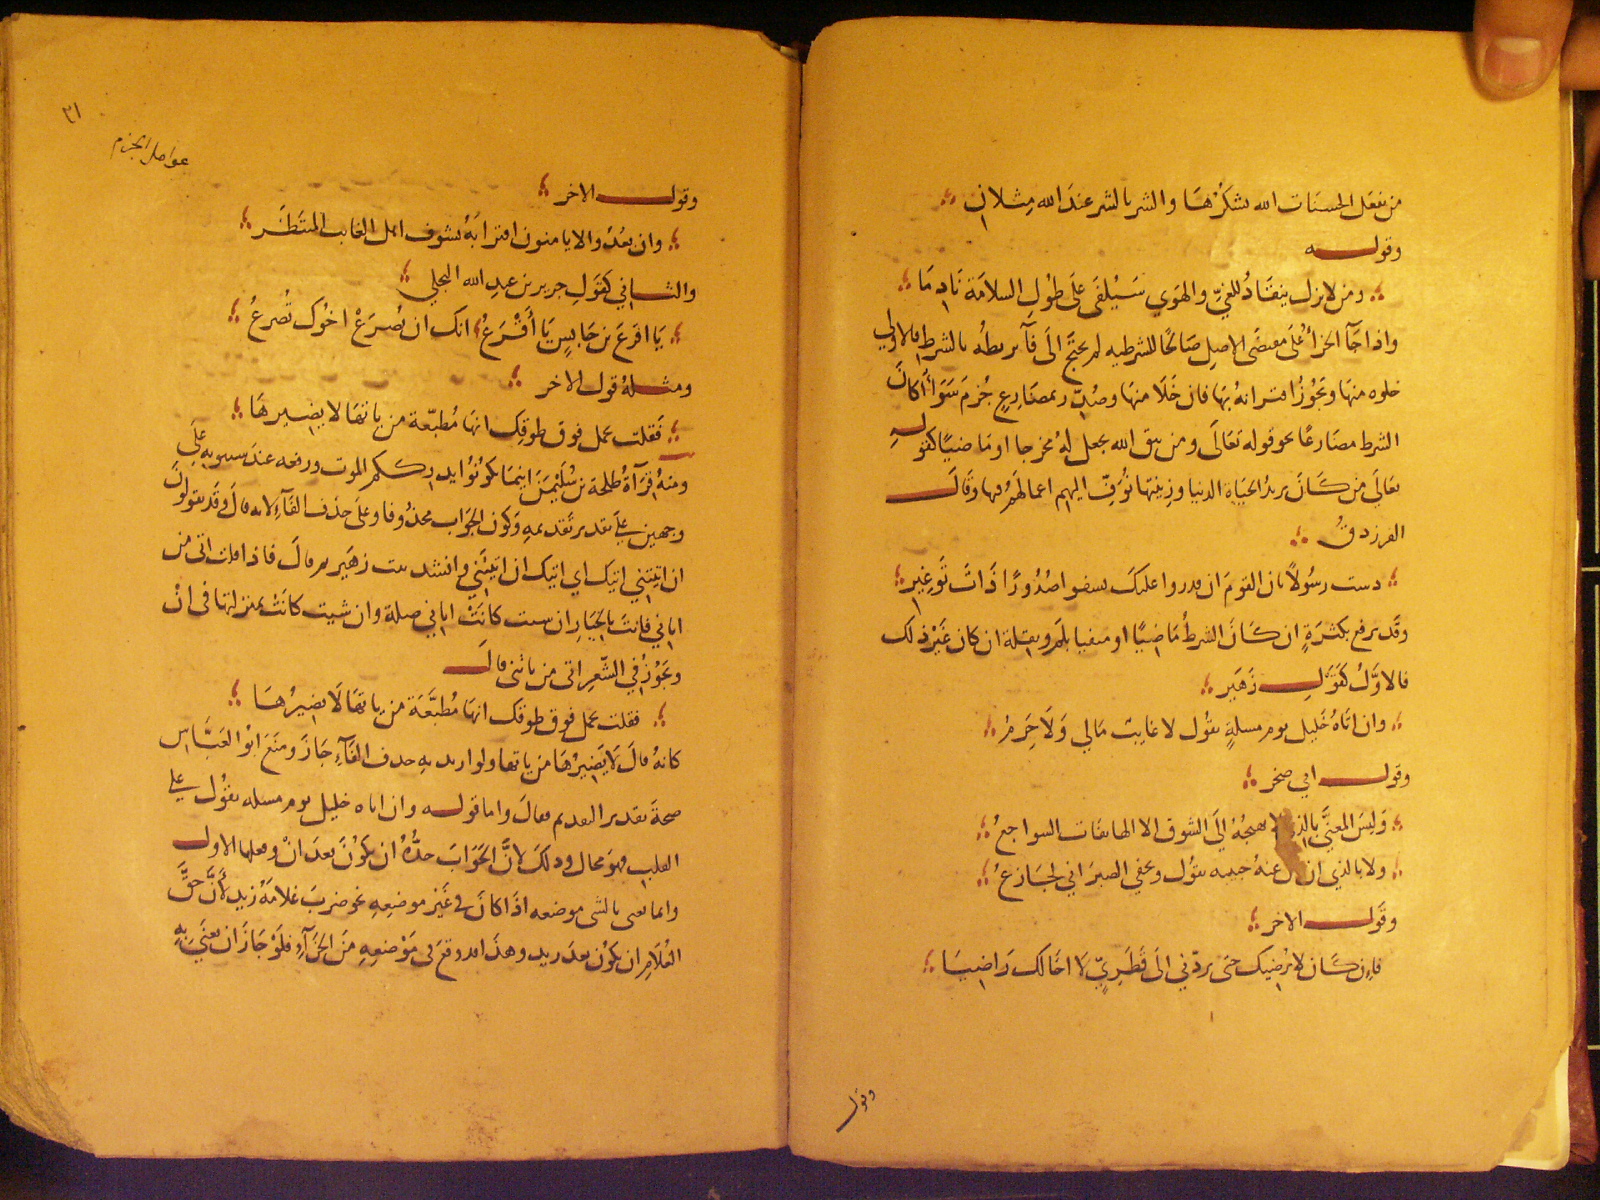 من يفعل الحسنات الله يشكرها والشر بالشر عند الله مثلان
وقوله
ومن لا يزل ينقاد للغي والهوي سيلفى على طول السلامة نادما
واذا جآ الجزأ على مقتضى الاصل صالحا للشرطيه لم يحتج الى فآ يربطه بالشرط فالاولي
خلوه منها ويجوز اقترانه بها فان خلا منها وصدر بمضارع جزم سوآ أكان
الشرط مضارعا نحو قوله تعالى ومن يتق الله يجعل له مخرجا او ماضيا كقوله
تعالى من كان يريد الحياة الدنيا وزينتها نوف اليهم اعمالهم فيها وقال
الفرزدق
دست رسولا بان القوم ان قدروا عليك يشفوا صدورا ذات توغير
وقد يرفع بكثرة ان كان الشرط ماضيا او منفيا بلم وبقلة ان كان غير ذلك
فالاول كقول زهير
وان اتاه خليل يوم مسلة يقول لا غايب مالي ولا حرم
وقول ابي صخر
وليس المعنى بالذي لا يهيجه إلى الشوق الا الهاتفات السواجع
ولا بالذي ان عنه حبيبه يقول ويخفي الصبر اني لجازع
وقول الاخر
فإن كان لا يرضيك حتى تردني الى قطري لا اخالك راضيا
وقول
٣١
عوامل الجزم
وقول الاخر
وان بعدوا لا يامنون اقترابه تشوف اهل الغايب المتنظر
والثاني كقول جرير بن عبد الله البجلي
يا اقرع بن حابس يا أقرع انك ان يصرع اخوك تصرع
ومثله قول الاخر
فقلت تحمل فوق طوقك انها مطبعة من ياتها لا يضيرها
ومنه قرآة طلحة بن سليمن اينما تكونوا يدرككم الموت ورفعه عند سيبويه على
وجهين على تقدير تقديمه وكون الجواب محذوفا وعلى حذف الفآ لانه قال وقد يقولون
ان اتيتني اتيك اي اتيك ان اتيتني وانشد بيت زهير ثم قال فاذا قلت اتى من
اتاني فانت بالخيار ان شيت كانت اتاني صلة وان شيت كانت بمنزلتها في ان
ويجوز في الشعر اتى من ياتني قال
فقلت تحمل فوق طوقك انها مطبعة من ياتها لا يضيرها
كانه قال لا يضيرها من ياتها ولو اريد به حذف الفآء جاز ومنع ابو العباس
صحة تقدير التقديم فقال واما قوله وان اتاه خليل يوم مسله يقول على
القلب فهو محال وذلك لان الجواب حده ان يكون بعد ان وفعلها الاول
وانما يعنى بالشى موضعه اذا كان في غير موضعه نحو ضرب غلامه زيد لأن حق
الغلام ان يكون بعد زيد وهذا قد وقع في موضعه من الجزآء فلو جاز ان يعنى به